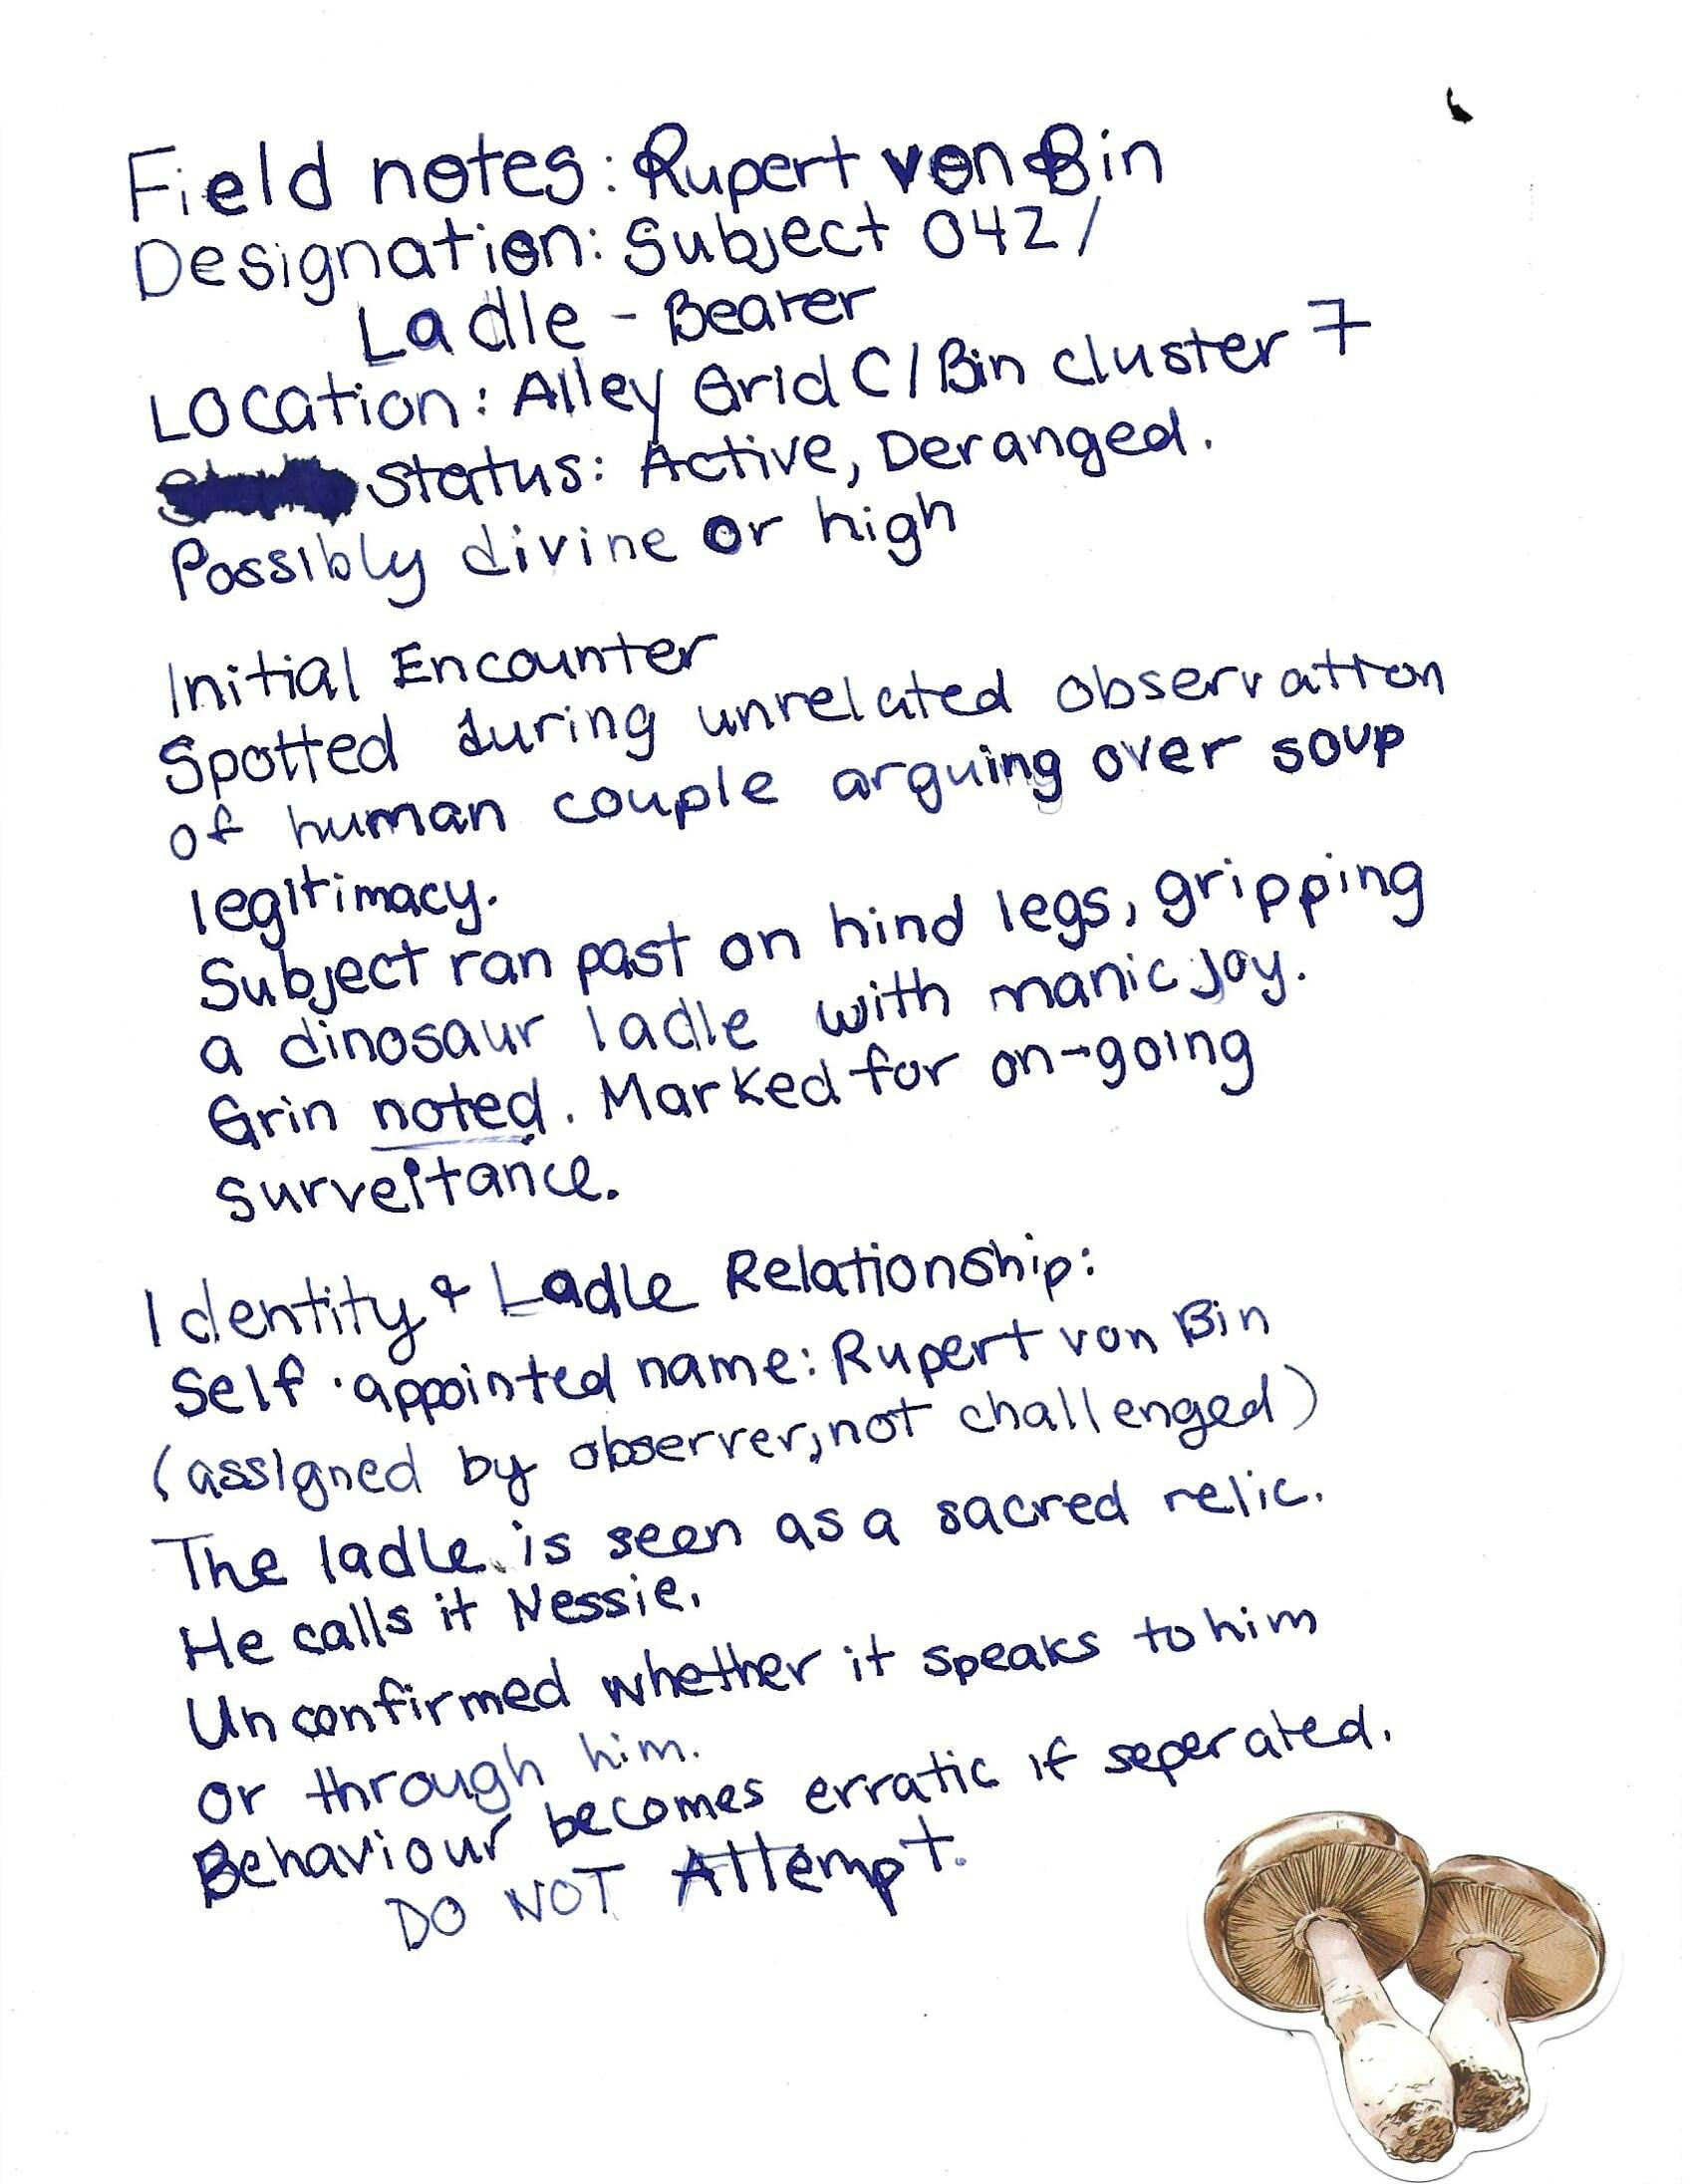 Field notes: Rupert von Bin
Designation: Subject 042/
Ladle - Bearer
Location: Alley Grid C/Bin cluster 7
Status: Active, Deranged.
Possibly divine or high
Initial Encounter
Spotted during unrelated observation
of human couple arguing over soup
legitimacy.
Subject ran past on hind legs, gripping
a dinosaur ladle with manic joy.
Grin noted. Marked for on-going
surveitance.
Identity & Ladle Relationship:
Self-appointed name: Rupert von Bin
(assigned by observer, not challenged)
The ladle is seen as a sacred relic.
He calls it Nessie.
Unconfirmed whether it speaks to him
or through him.
Behaviour becomes erratic if seperated.
DO NOT Attempt.